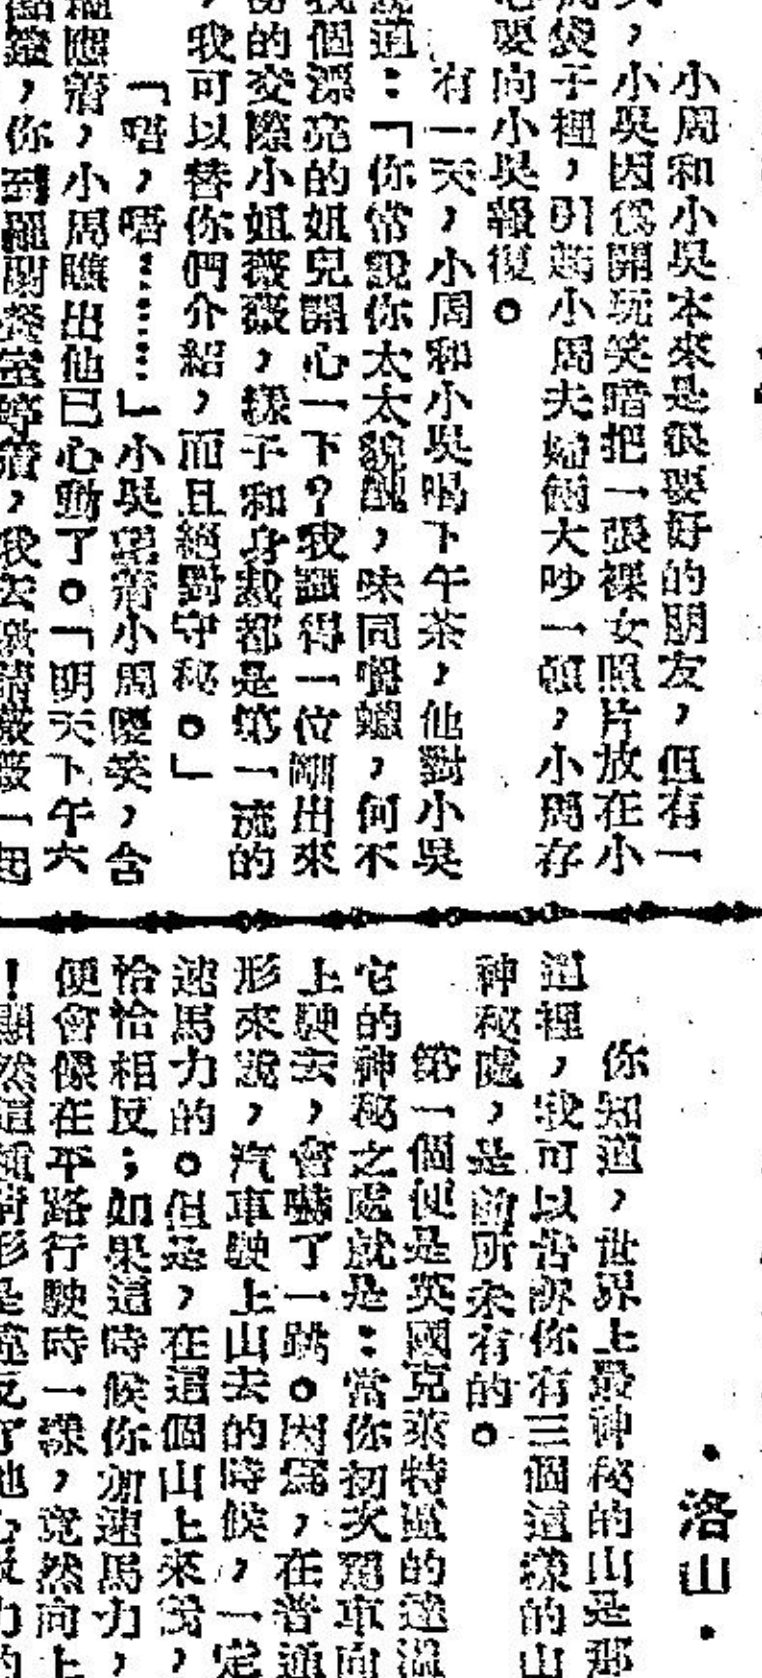 小周和小吳本來是很要好的朋友，但有一
，小吳因爲開玩笑暗把一張裸女照片放在小
袋子裡，引起小周夫婦倆大吵一頓，小周存
心要向小吳報復。
有一天，小周和小吳喝下午茶，他對小吳
道：「你常說你太太貌醜，味同嚼蠟，何不
找個漂亮的妞兒開心一下？我識得一位剛出來
的交際小姐薇薇，樣子和身裁都是第一流的
，我可以替你們介紹，而且絕對守秘。」
「唔，唔………」小吳望着小周傻笑，含
應着，小周瞧出他已心動了。「明天下午六
點鐘，你到羅蘭餐室等着，我去邀請薇薇一起
•洛山•
你知道，世界上最神秘的山是那
這裡，我可以告訴你有三個這樣的山
神秘處，是前所未有的。
第一個便是英國克萊特區的達溫
它的神秘之處就是：當你初次駕車向
上駛去，會嚇了一跳。因爲，在普通
形來說，汽車駛上山去的時候，一定
速馬力的。但是，在這個山上來說，
恰恰相反；如果這時候你加速馬力，
便會像在平路行駛時一樣，竟然向上
！顯然這種情形是違反了地心吸力的